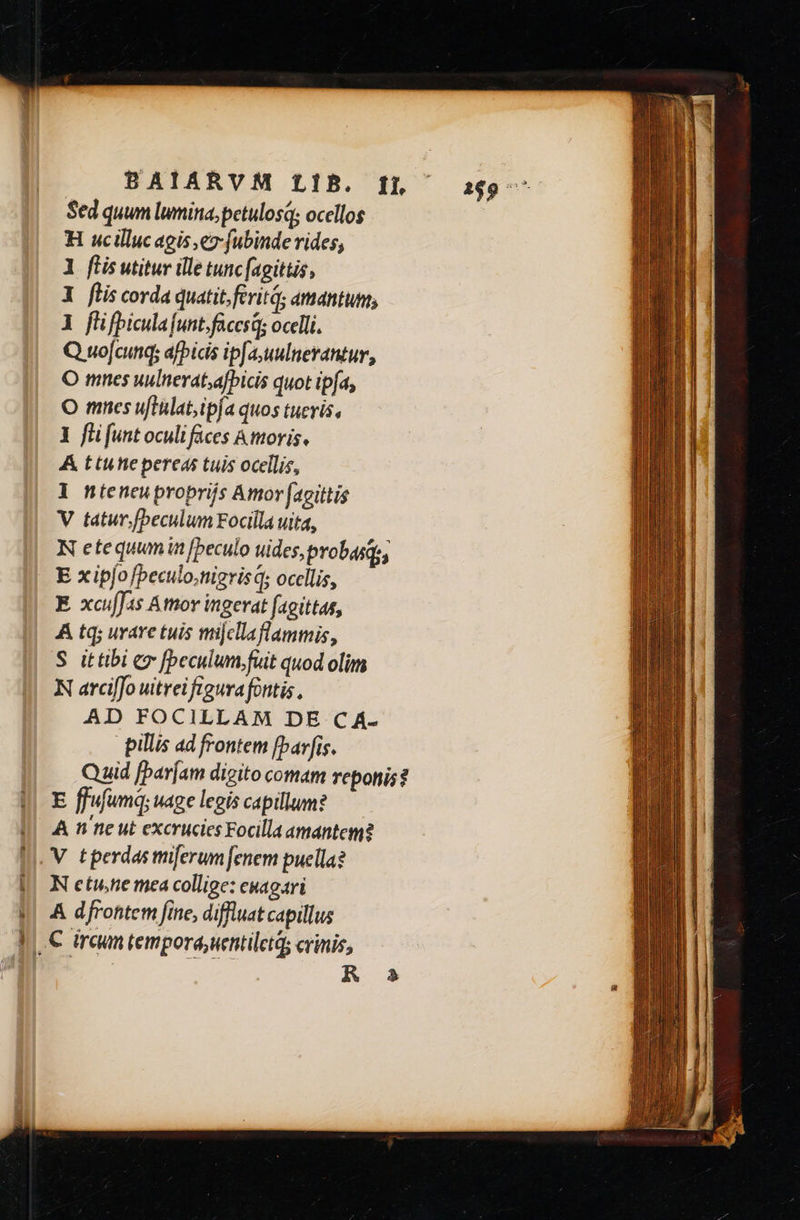 BAIARVM LIB. II. 259
Sed quum lumina, petulosq; ocellos
H uc illuc agis, & ſubinde rides,
I ſtis utitur ille tunc ſagittis,
I ſtis corda quatit, feritq; amantum,
I ſti ſpicula ſunt, facesq; ocelli.
Q uoſcunq; aſpicis ipſa, uulnerantur,
O mnes uulnerat, aſpicis quot ipſa,
O mnes uſtulat, ipſa quos tueris,
I ſti ſunt oculi faces Amoris.
A t tu ne pereas tuis ocellis,
I nte neu proprijs Amor ſagittis
V tatur, ſpeculum Focilla uita,
N ete quum in ſpeculo uides, probasq;,
E x ipſo ſpeculo, nigrisq; ocellis,
E xcuſſas Amor ingerat ſagittas,
A tq; urare tuis miſella flammis,
S it tibi & ſpeculum, fuit quod olim
N arciſſo uitrei figura fontis.
AD FOCILLAM DE CA-
pillis ad frontem ſparſis.
Quid ſparſam digito comam reponis?
E ffuſumq; uage legis capillum?
A n'ne ut excrucies Focilla amantem?
V t perdas miſerum ſenem puella?
N e tu, ne mea collige: euagari
A d frontem ſine, diffluat capillus
C ircum tempora, uentiletq; crinis,
R 3